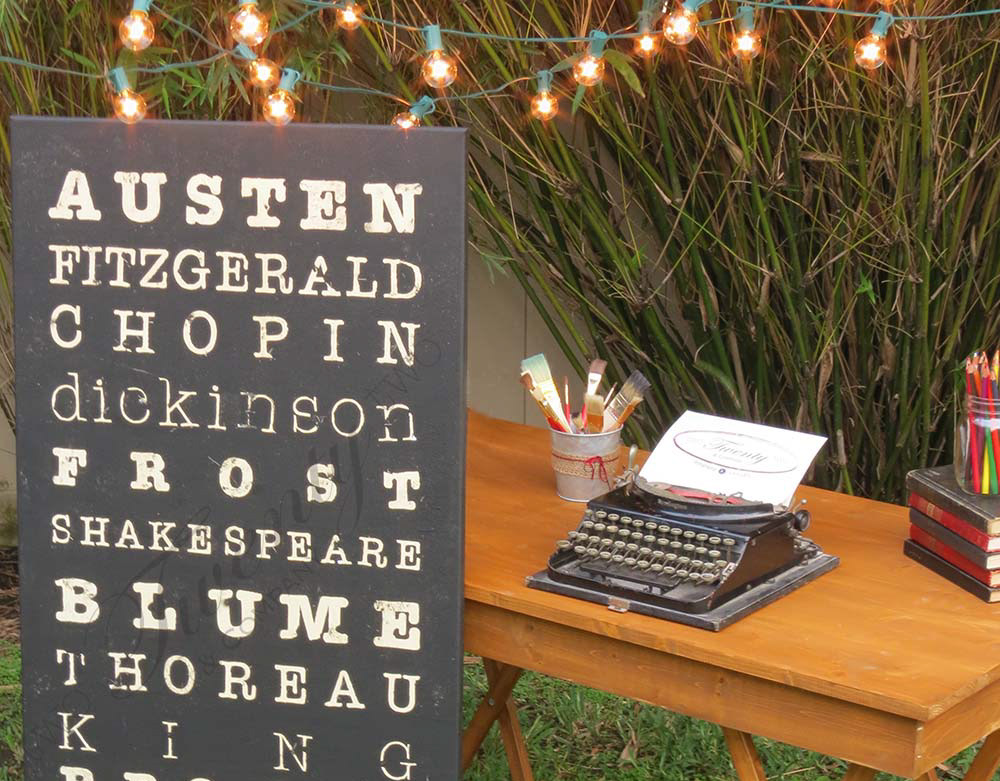 AUSTEN
FITZGERALD
CHOPIN
dickinson
FROST
SHAKESPEARE
BLUME
THOREAU
KING
Twenty